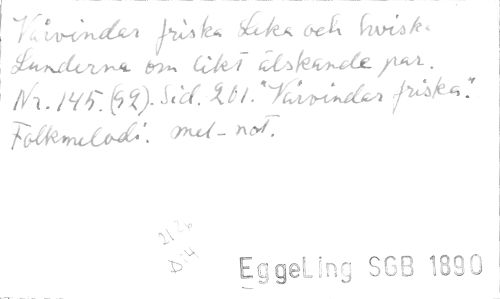 Vårvindar friska Leka och hviska
Lunderna om likt älskande par.
Nr. 145. (92). Sid. 201. "Vårvindar friska".
Folkmelodi. mel-not.
2126
D:4
EggeLing SGB 1890